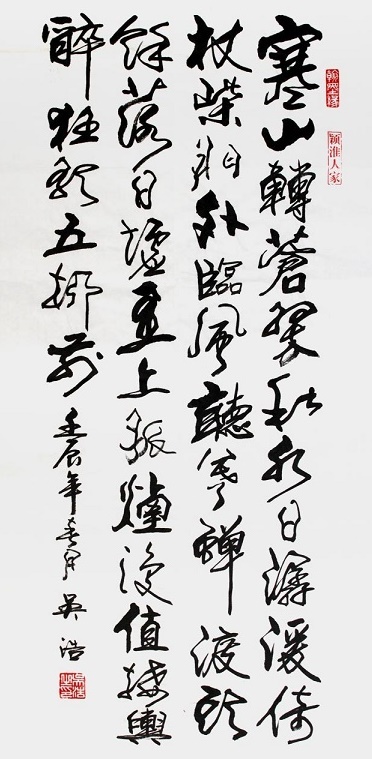 寒山轉蒼翠秋水日潺湲倚
杖柴門外臨風聽暮蟬渡頭
餘落日墟里上孤煙復值接輿
醉狂歌五柳前
壬辰年春月 吳浩
颖淮人家